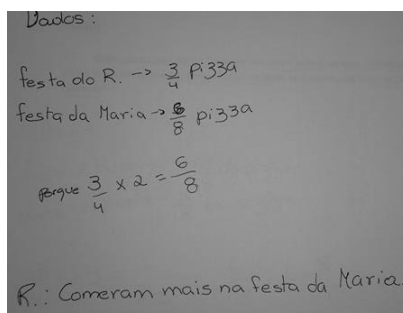 Dados:
festa do R. -> 3/4 pizza
festa da Maria -> 6/8 pizza
porque 3/4 x 2 = 6/8
R.: Comeram mais na festa da Maria.